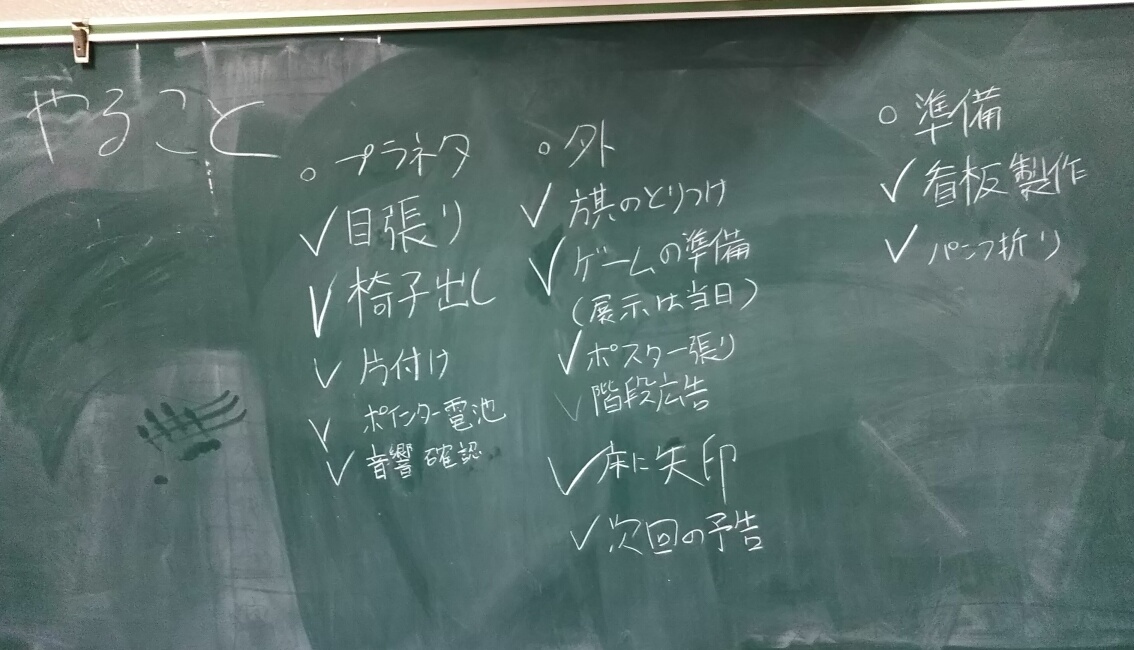 やること
○ プラネタ
✓ 目張り
✓ 椅子出し
✓ 片付け
✓ ポインター電池
✓ 音響確認
○ 外
✓ 旗のとりつけ
✓ ゲームの準備
(展示は当日)
✓ ポスター張り
✓ 階段広告
✓ 床に矢印
✓ 次回の予告
○ 準備
✓ 看板製作
✓ パンフ折り